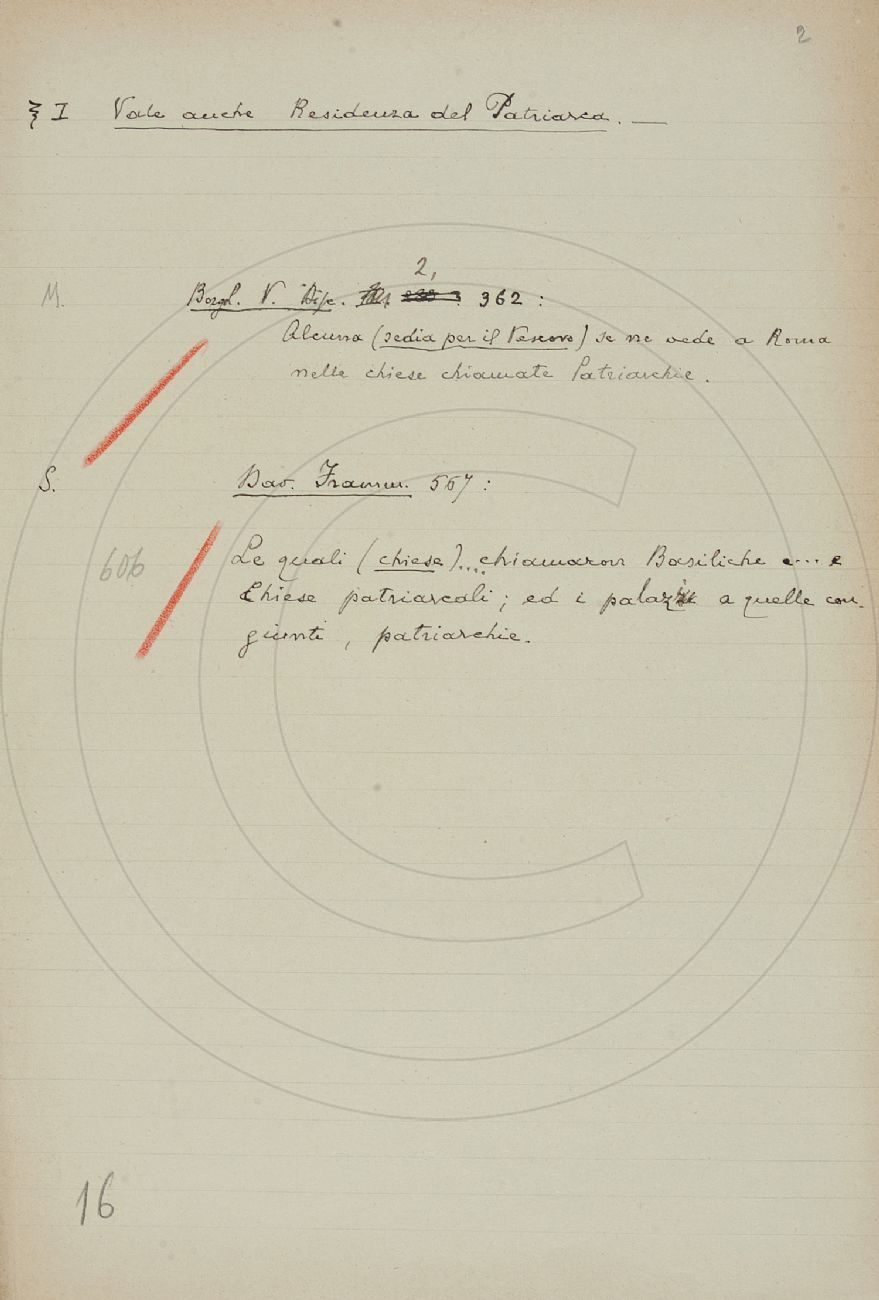 2
§ I Vale anche Residenza del Patriarca. —
2,
M. Borgh. V. Disc. 362 :
Alcuna (sedia per il Vescovo) se ne vede a Roma
nelle chiese chiamate Patriarchie.
S. Dav. Framm. 567 :
606 Le quali (chiese).... chiamaron Basiliche e... e
Chiese patriarcali ; ed i palazzi a quelle con-
giunti , patriarchie.
16